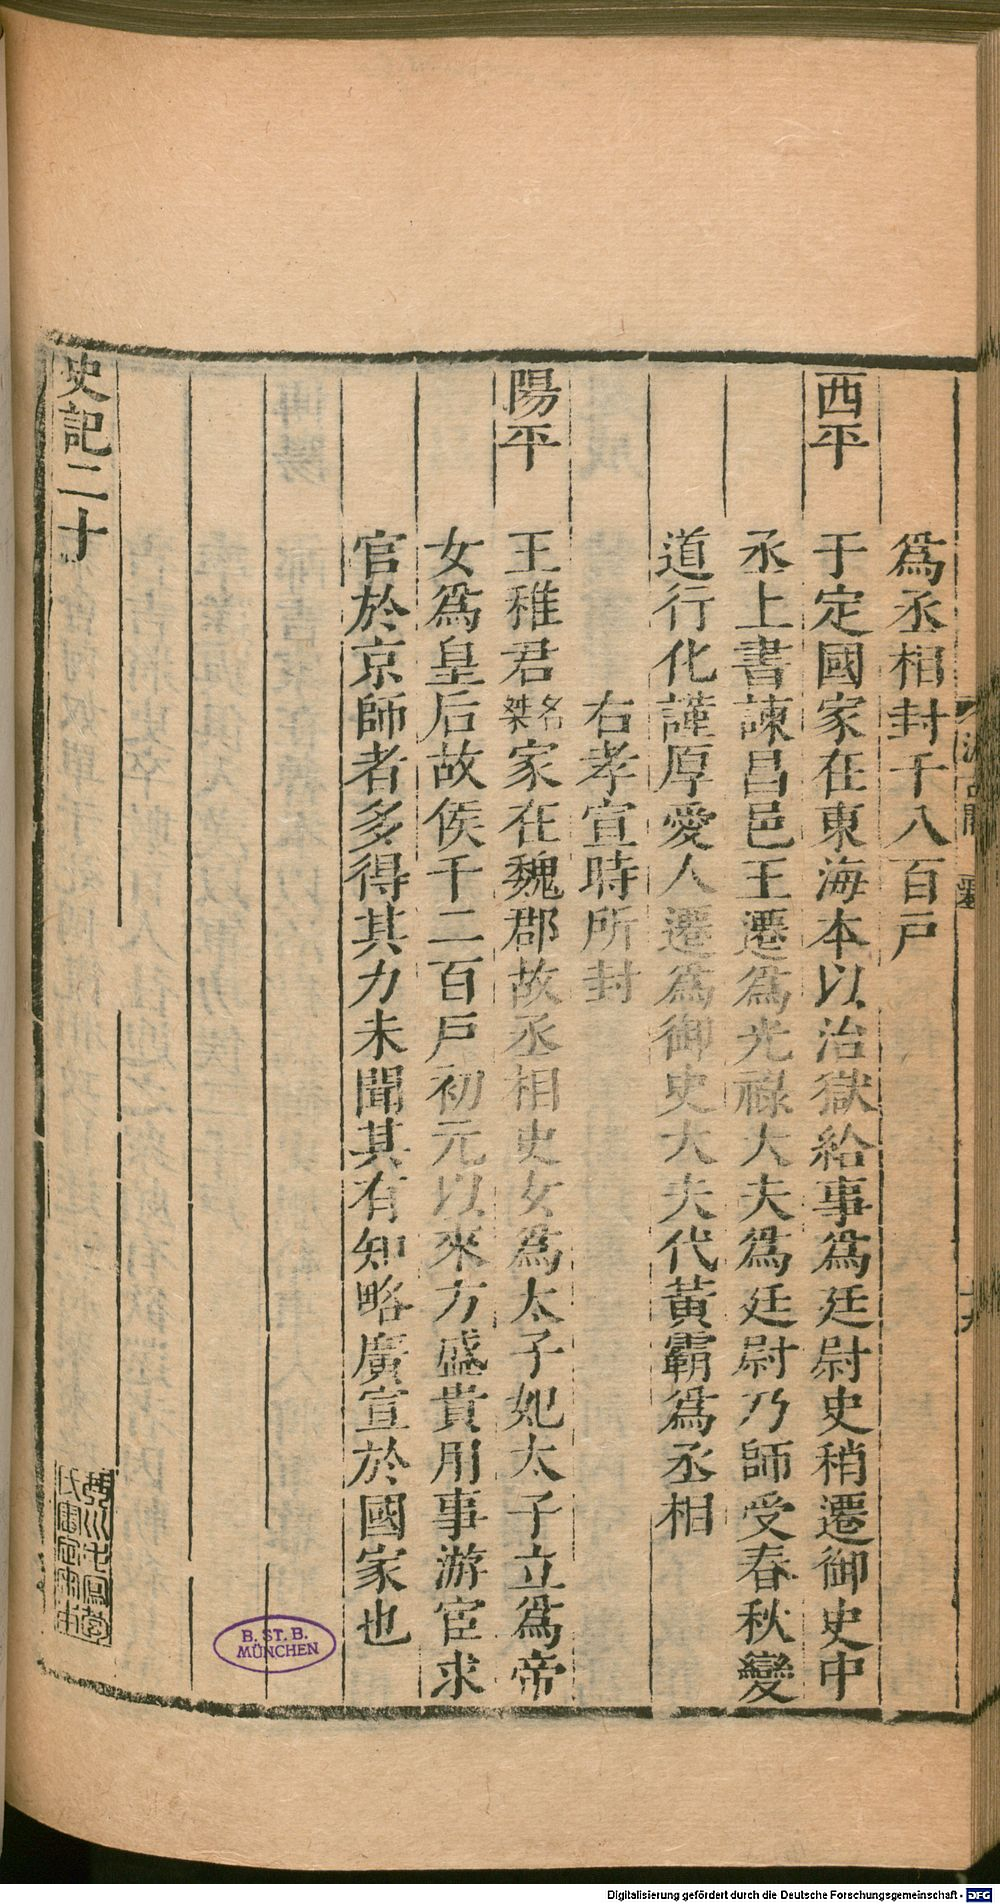 爲丞相封千八百戶
西平 于定國家在東海本以治獄給事爲廷尉史稍遷御史中
丞上書諫昌邑王遷爲光祿大夫爲廷尉乃師受春秋變
道行化謹厚愛人遷爲御史大夫代黃霸爲丞相
右孝宣時所封
陽平 王稚君名桀家在魏郡故丞相史女爲太子妃太子立爲帝
女爲皇后故侯千二百戶初元以來方盛貴用事游宦求
官於京師者多得其力未聞其有知略廣宣於國家也
史記二十
B. ST. B.
MÜNCHEN
Digitalisierung gefördert durch die Deutsche Forschungsgemeinschaft - DFG